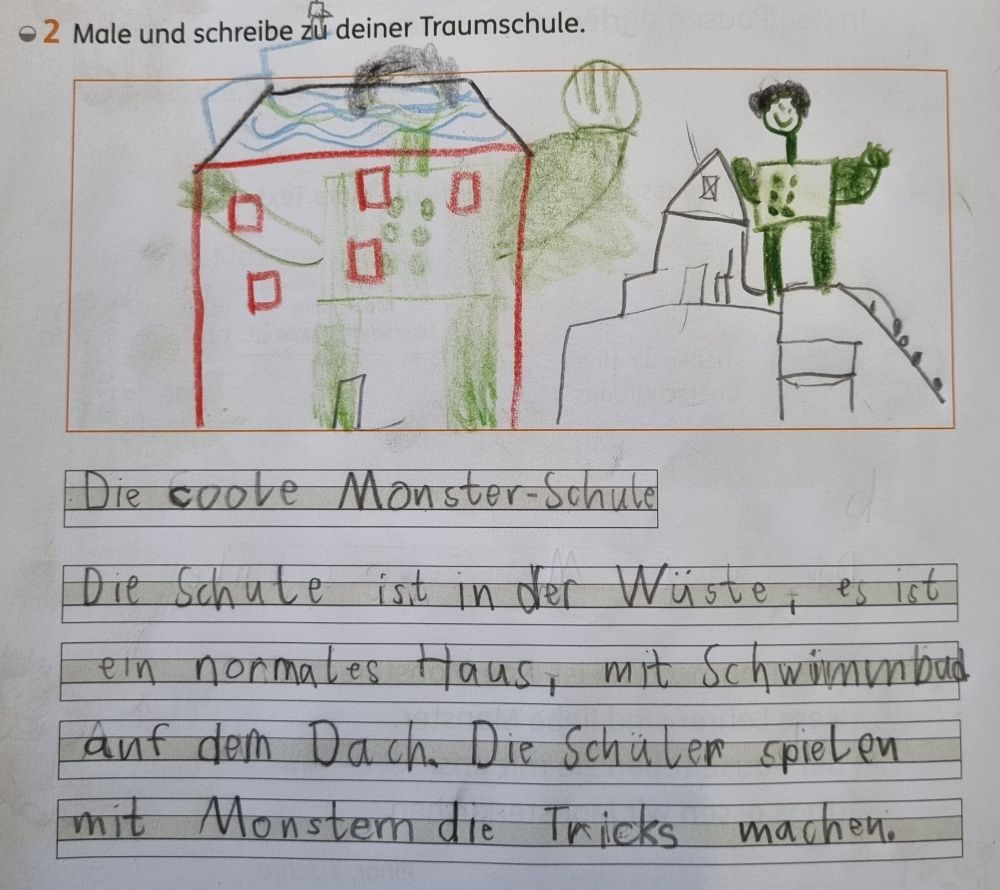 2 Male und schreibe zu deiner Traumschule.
Die coole Monster-Schule
Die Schule ist in der Wüste, es ist
ein normales Haus, mit Schwimmbad
auf dem Dach. Die Schüler spielen
mit Monstern die Tricks machen.